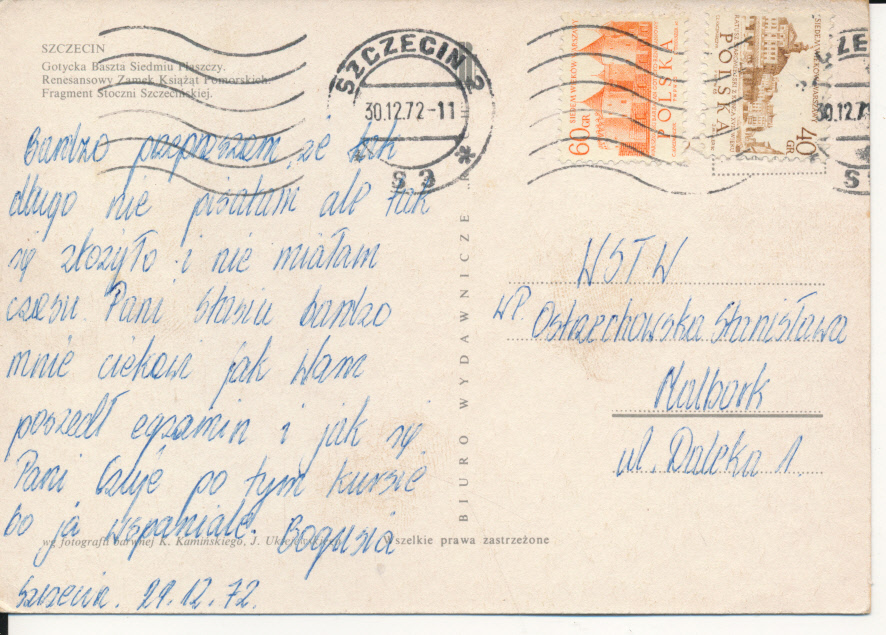 SZCZECIN
Gotycka Baszta Siedmiu Płaszczy.
Renesansowy Zamek Książąt Pomorskich.
Fragment Stoczni Szczecińskiej.
Bardzo przepraszam, że tak
długo nie pisałam ale tak
się złożyło i nie miałam
czasu. Pani Stasiu bardzo
mnie ciekawi jak Wam
poszedł egzamin i jak się
Pani czuje po tym kursie
bo ja wspaniale. Bogusia
Szczecin. 29.12.72.
wg fotografii barwnej K. Kamińskiego, J.
Wszelkie prawa zastrzeżone
BIURO WYDAWNICZE
SZCZECIN 2
30.12.72-11
60 GR
POLSKA
SIEDEM WIEKÓW WARSZAWY
40 GR
POLSKA
30.12.7
WSTW
WP Ostrzechowska Stanisława
Malbork
ul. Daleka 1.